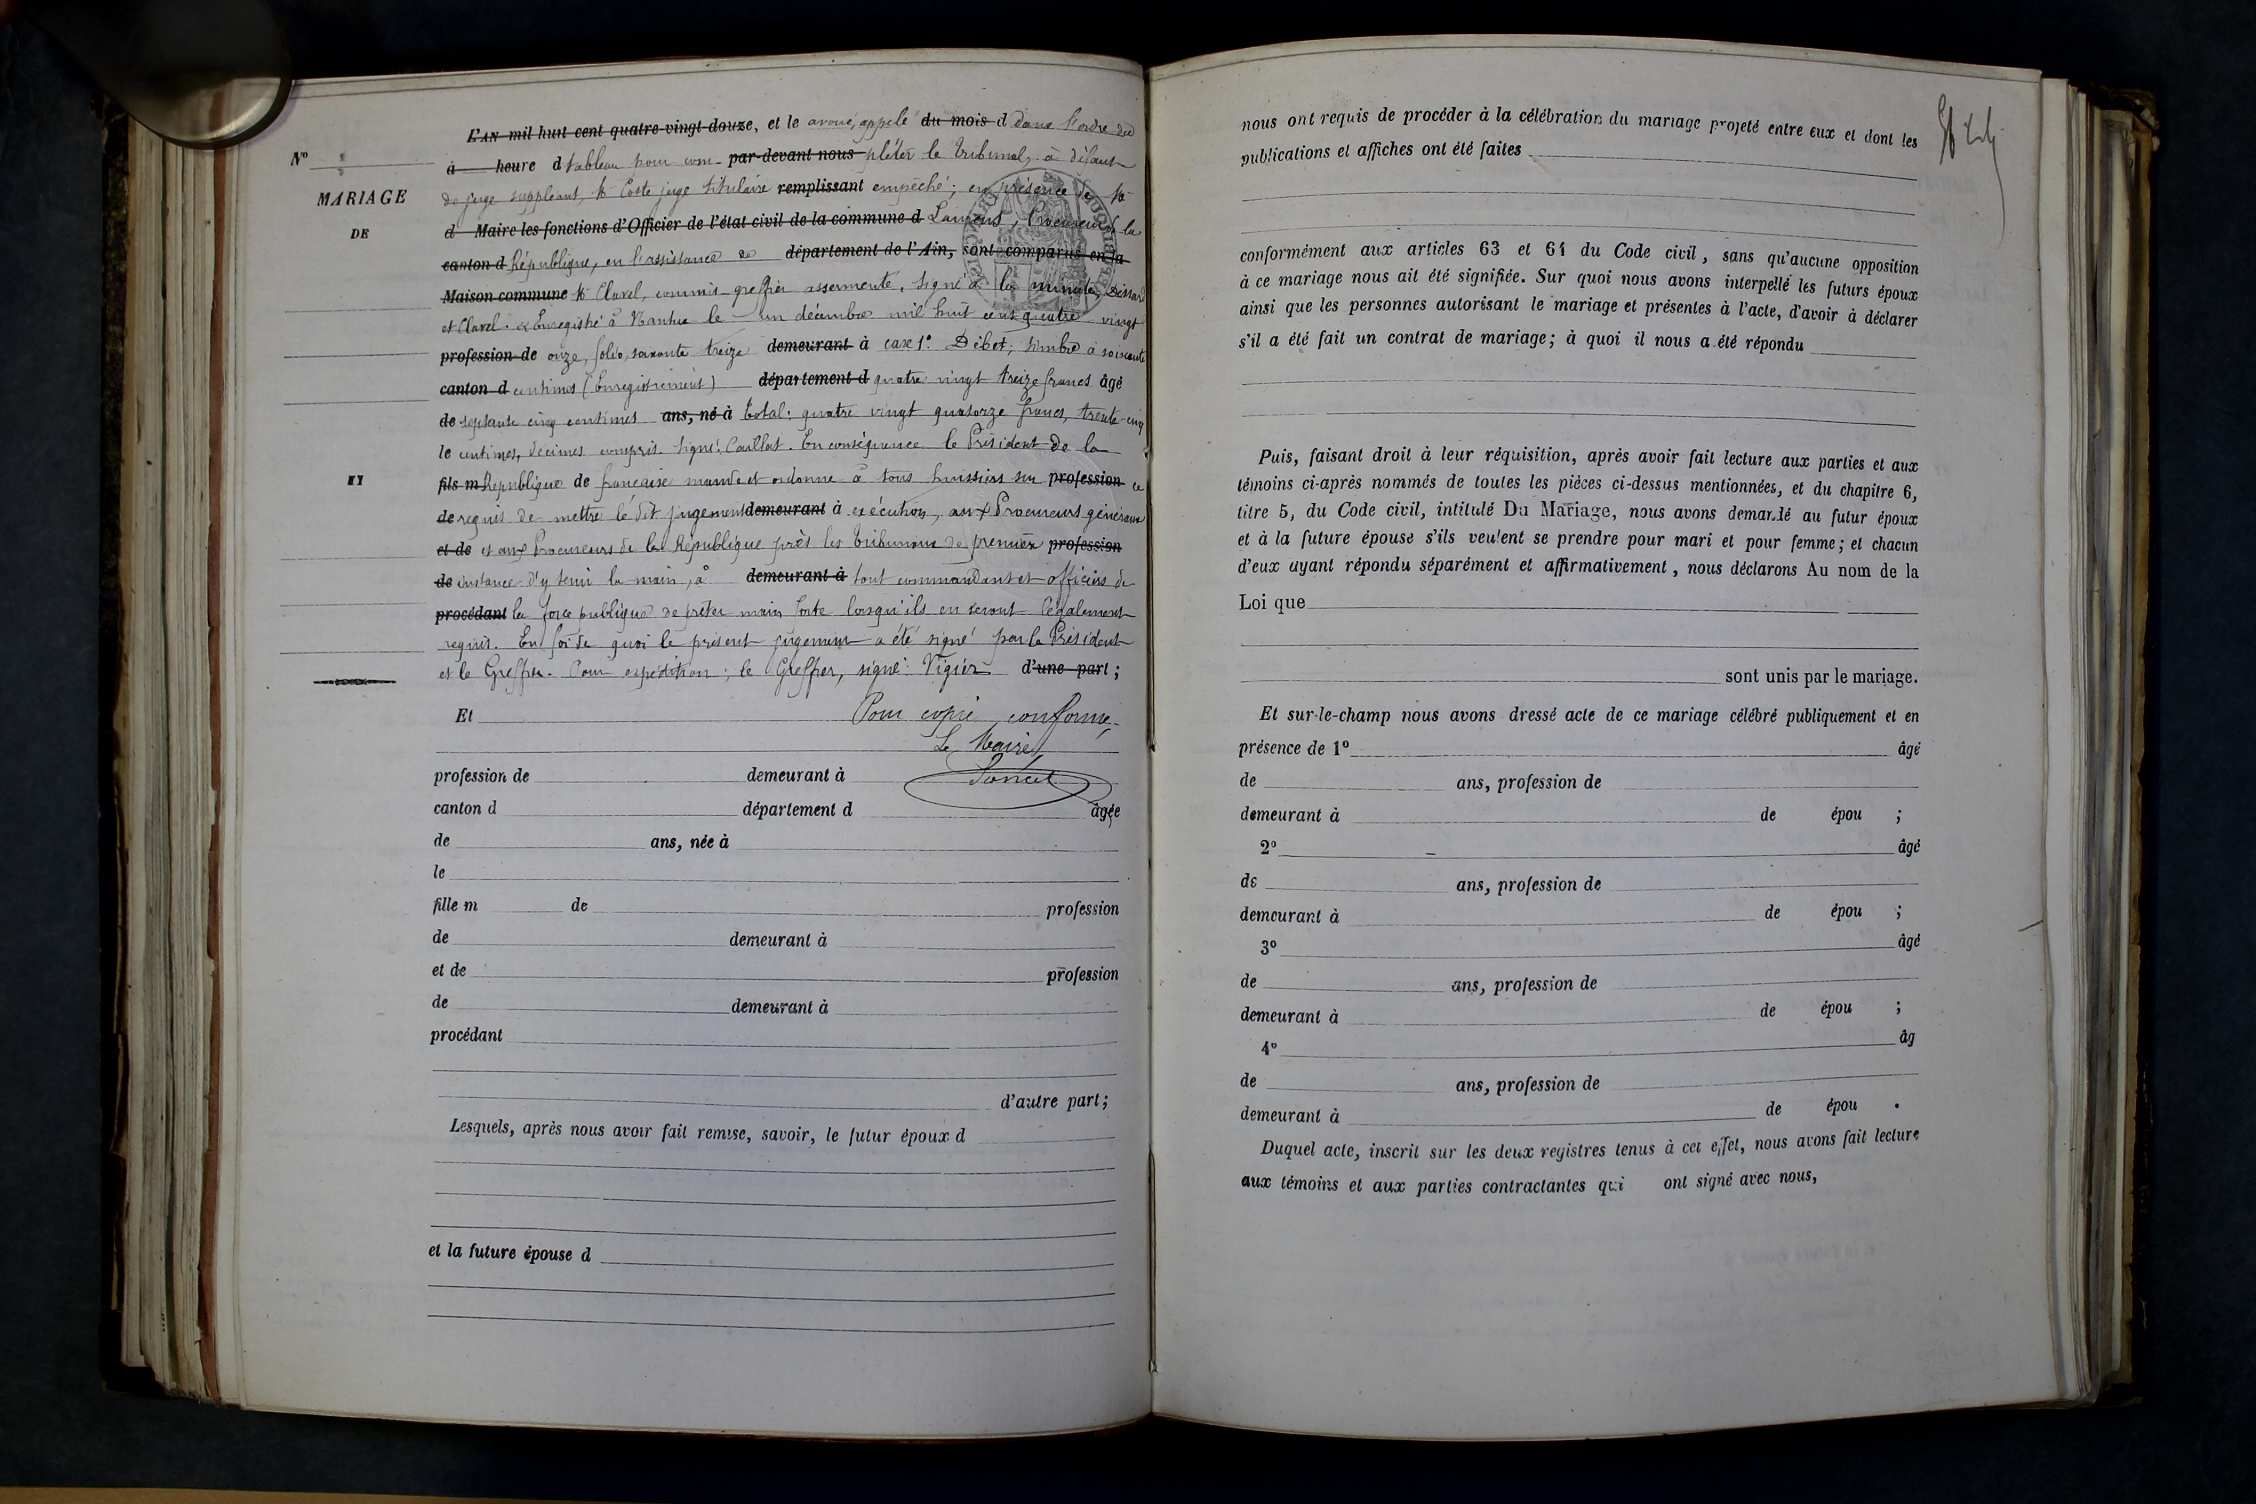 N°
MARIAGE
DE
ET
L'AN mil huit cent quatre-vingt-douze, et le avoué, appelé du mois d dans l'ordre du
à heure d tableau pour com- par-devant nous pléter le tribunal, à défaut
de juge suppléant, Mr Coste juge titulaire remplissant empêché; en présence de Mr
d Maire les fonctions d'Officier de l'état civil de la commune d Laurent, Procureur de la
canton d République, en l'assistance de département de l'Ain, sont comparus en la
Maison commune Mr Clavel, commis-greffier assermenté. Signé à la minute,
et Clavel. Enregistré à Nantua le un décembre mil huit cent quatre vingt
profession de onze, folio soixante treize demeurant à case 1e. Débet; timbre à soixante
canton d centimes (Enregistrement) département d quatre vingt treize francs âgé
de septante cinq centimes ans, né à Total: quatre vingt quatorze francs, trente-cinq
le centimes, décimes compris. Signé: Caillat. En conséquence le Président de la
fils m République de française mande et ordonne à tous huissiers sur profession ce
de requis de mettre le dit jugement demeurant à exécution, aux Procureurs généraux
et de et aux Procureurs de la République près les tribunaux de première profession
de instance d'y tenir la main, à demeurant à tout commandants et officiers de
procédant la force publique de prêter main forte lorsqu'ils en seront légalement
requis. En foi de quoi le présent jugement a été signé par le Président
et le Greffier. Pour expédition: le Greffier, signé: Vigier d'une part;
Et Pour copie conforme,
Le Maire
profession de demeurant à
canton d département d âgée
de ans, née à
le
fille m de profession
de demeurant à
et de profession
de demeurant à
procédant
d'autre part;
Lesquels, après nous avoir fait remise, savoir, le futur époux d
et la future épouse d
nous ont requis de procéder à la célébration du mariage projeté entre eux et dont les
publications et affiches ont été faites
conformément aux articles 63 et 64 du Code civil, sans qu'aucune opposition
à ce mariage nous ait été signifiée. Sur quoi nous avons interpellé les futurs époux
ainsi que les personnes autorisant le mariage et présentes à l'acte, d'avoir à déclarer
s'il a été fait un contrat de mariage; à quoi il nous a été répondu
Puis, faisant droit à leur réquisition, après avoir fait lecture aux parties et aux
témoins ci-après nommés de toutes les pièces ci-dessus mentionnées, et du chapitre 6,
titre 5, du Code civil, intitulé Du Mariage, nous avons demandé au futur époux
et à la future épouse s'ils veulent se prendre pour mari et pour femme; et chacun
d'eux ayant répondu séparément et affirmativement, nous déclarons Au nom de la
Loi que
sont unis par le mariage.
Et sur-le-champ nous avons dressé acte de ce mariage célébré publiquement et en
présence de 1° âgé
de ans, profession de
demeurant à de épou ;
2° âgé
de ans, profession de
demeurant à de épou ;
3° âgé
de ans, profession de
demeurant à de épou ;
4° âg
de ans, profession de
demeurant à de épou .
Duquel acte, inscrit sur les deux registres tenus à cet effet, nous avons fait lecture
aux témoins et aux parties contractantes qui ont signé avec nous,